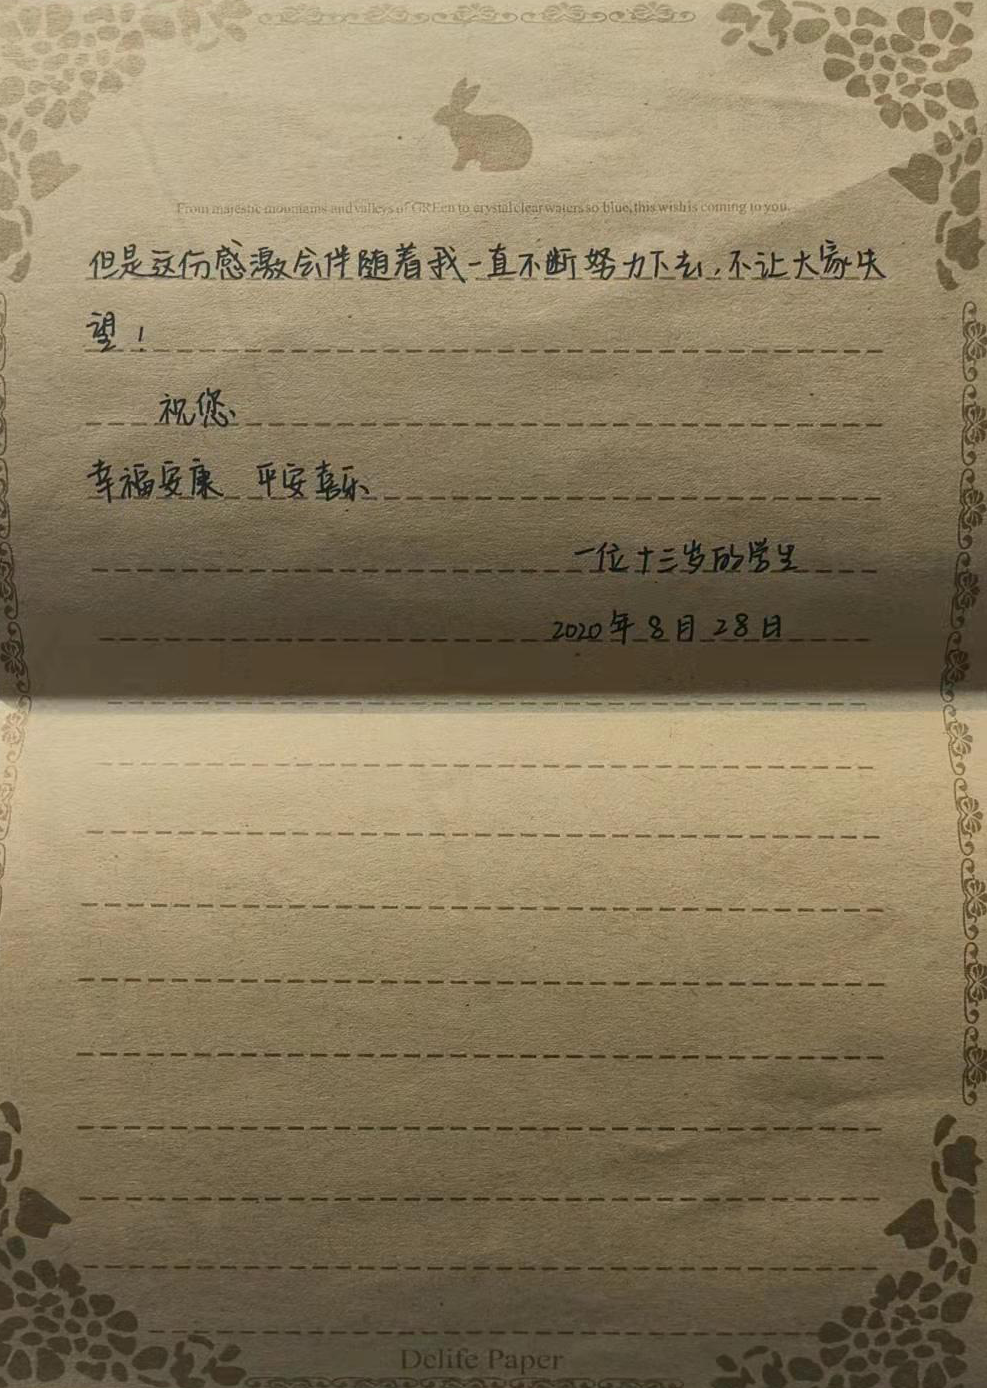 From majestic mountains and valleys of GREen to crystal clear waters so blue, this wish is coming to you.
但是这份感激会伴随着我一直不断努力下去，不让大家失
望！
祝您
幸福安康 平安喜乐
一位十三岁的学生
2020年8月28日
Delife Paper